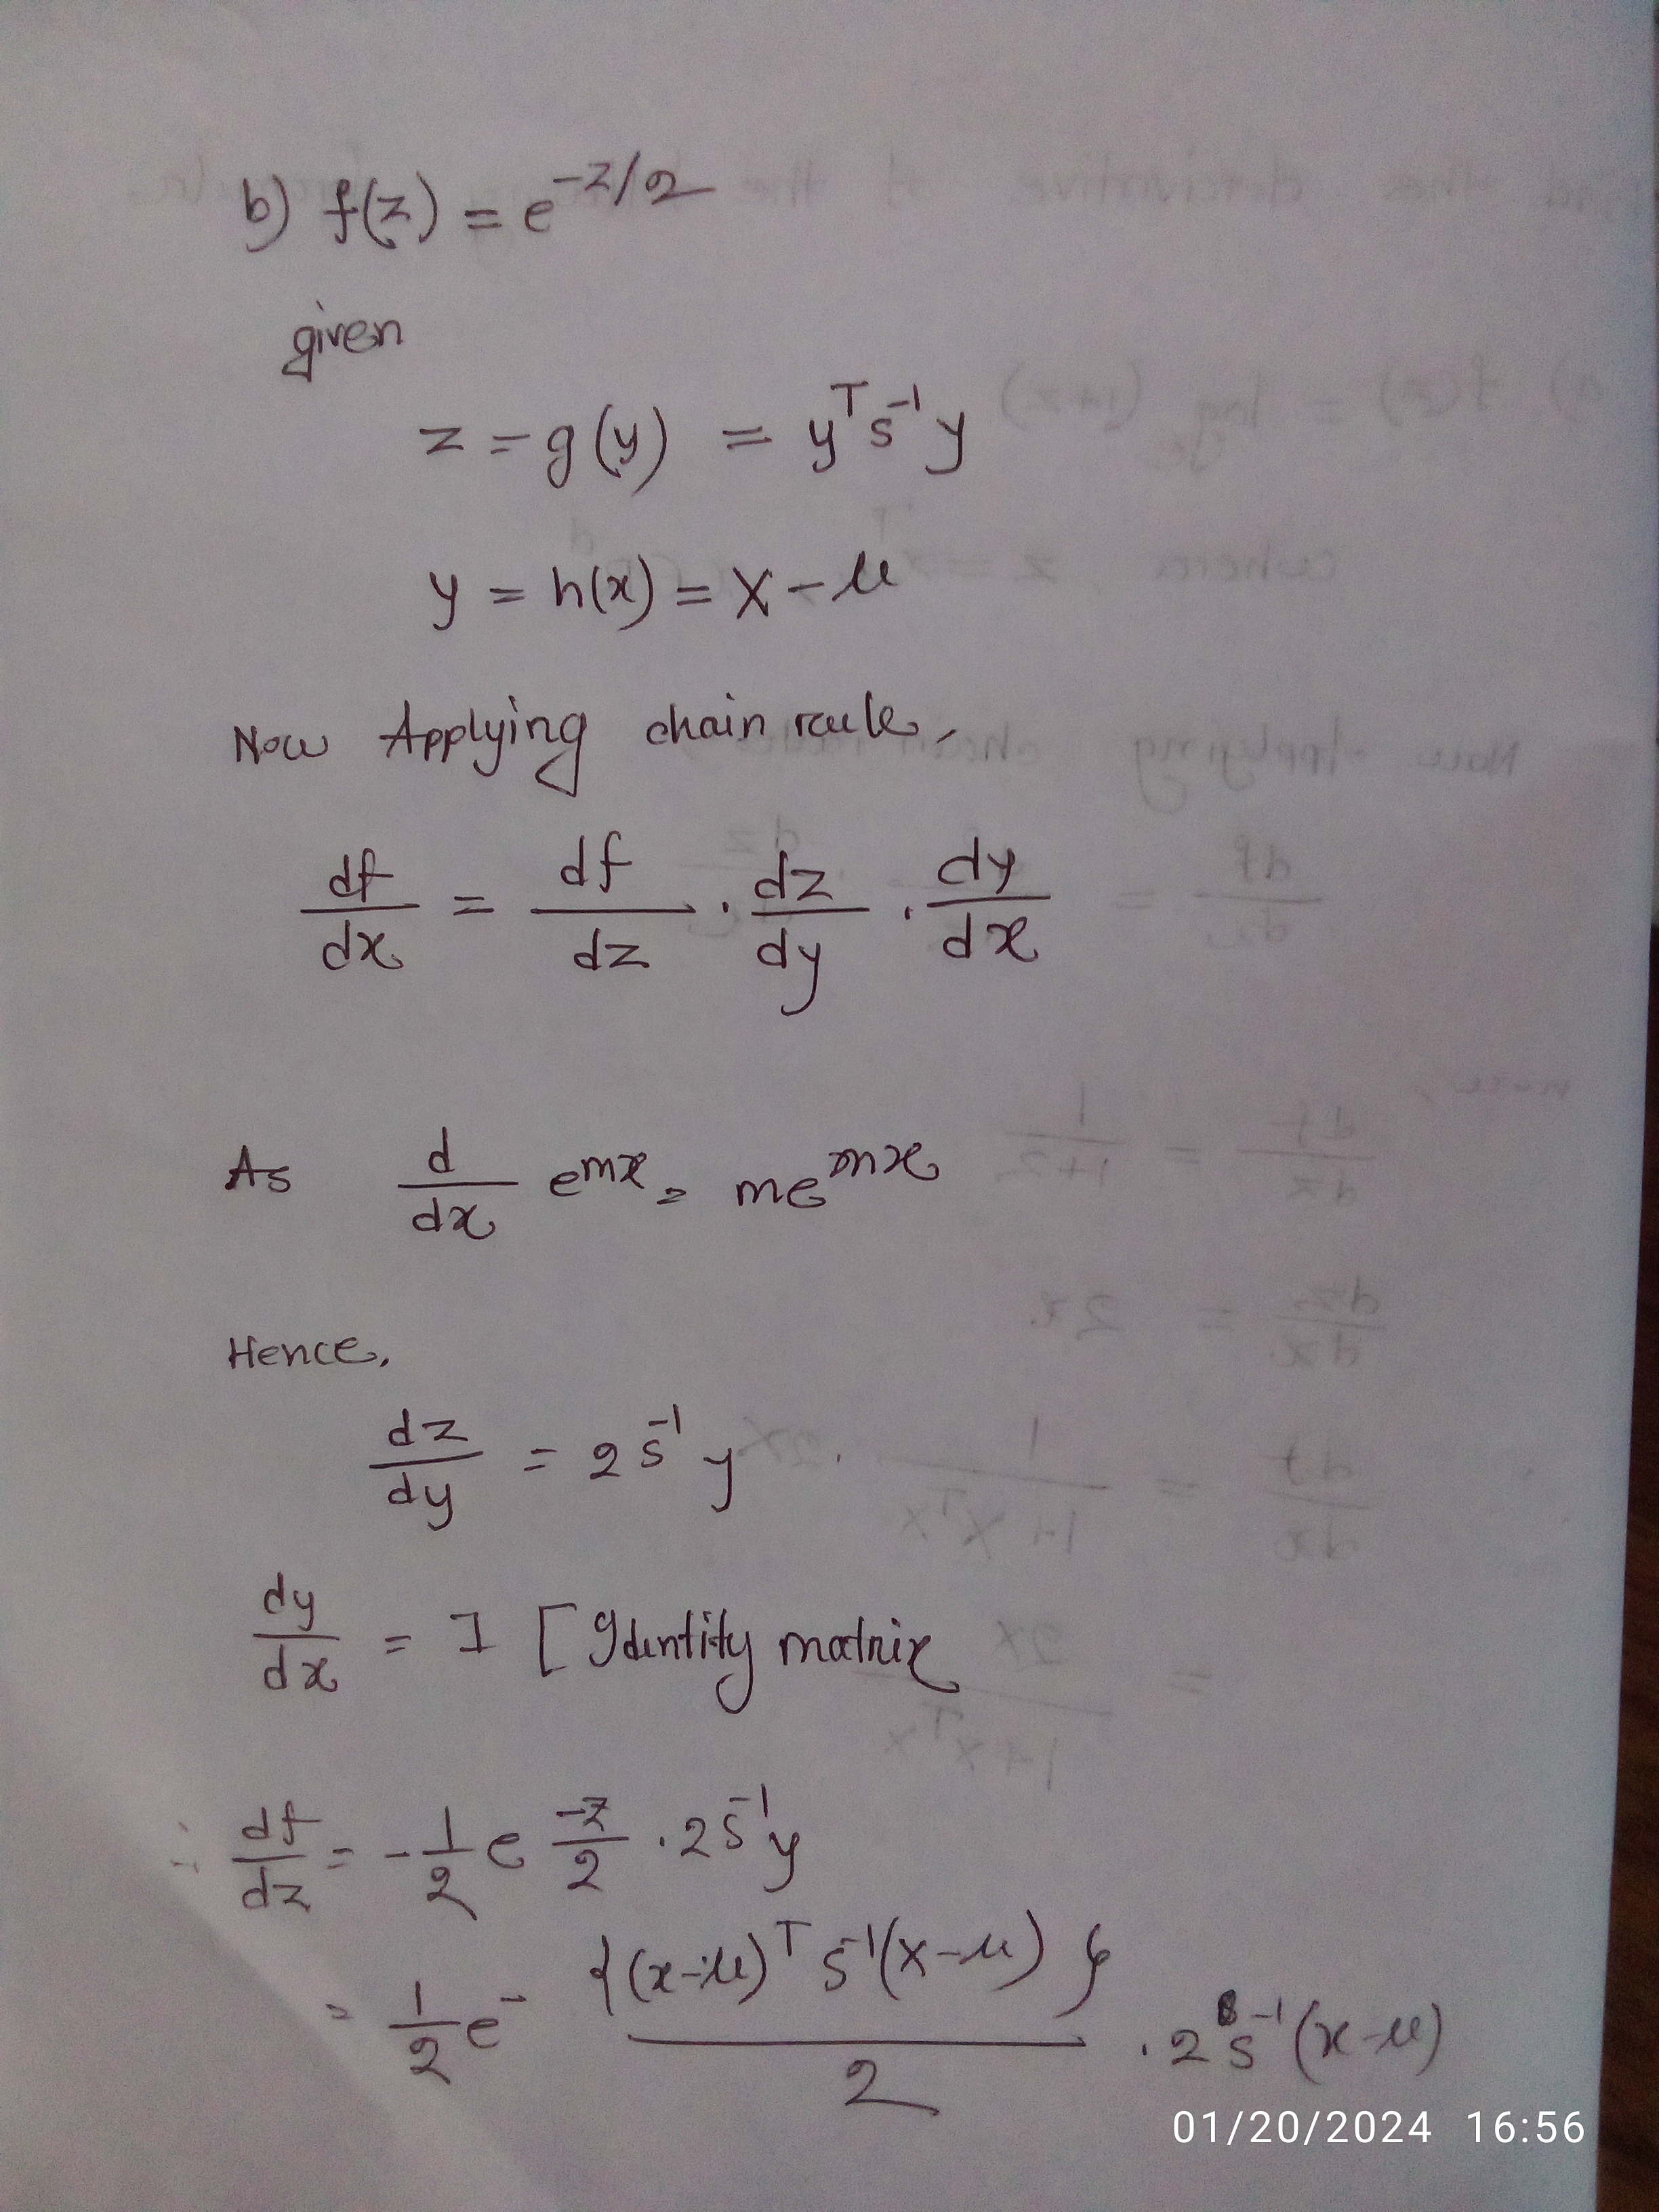 b) f(z) = e^{-z/2}
given
z = g(y) = y^T s^{-1} y
y = h(x) = x - μ
Now Applying chain rule,
df/dx = df/dz . dz/dy . dy/dx
As d/dx e^{mx} = me^{mx}
Hence,
dz/dy = 2 s^{-1} y
dy/dx = I [Identity matrix
∴ df/dz = -1/2 e -z/2 . 2 s^{-1} y
= 1/2 e^- {(x-μ)^T s^{-1} (x-μ)}/2 . 2 s^{-1} (x-μ)
01/20/2024 16:56